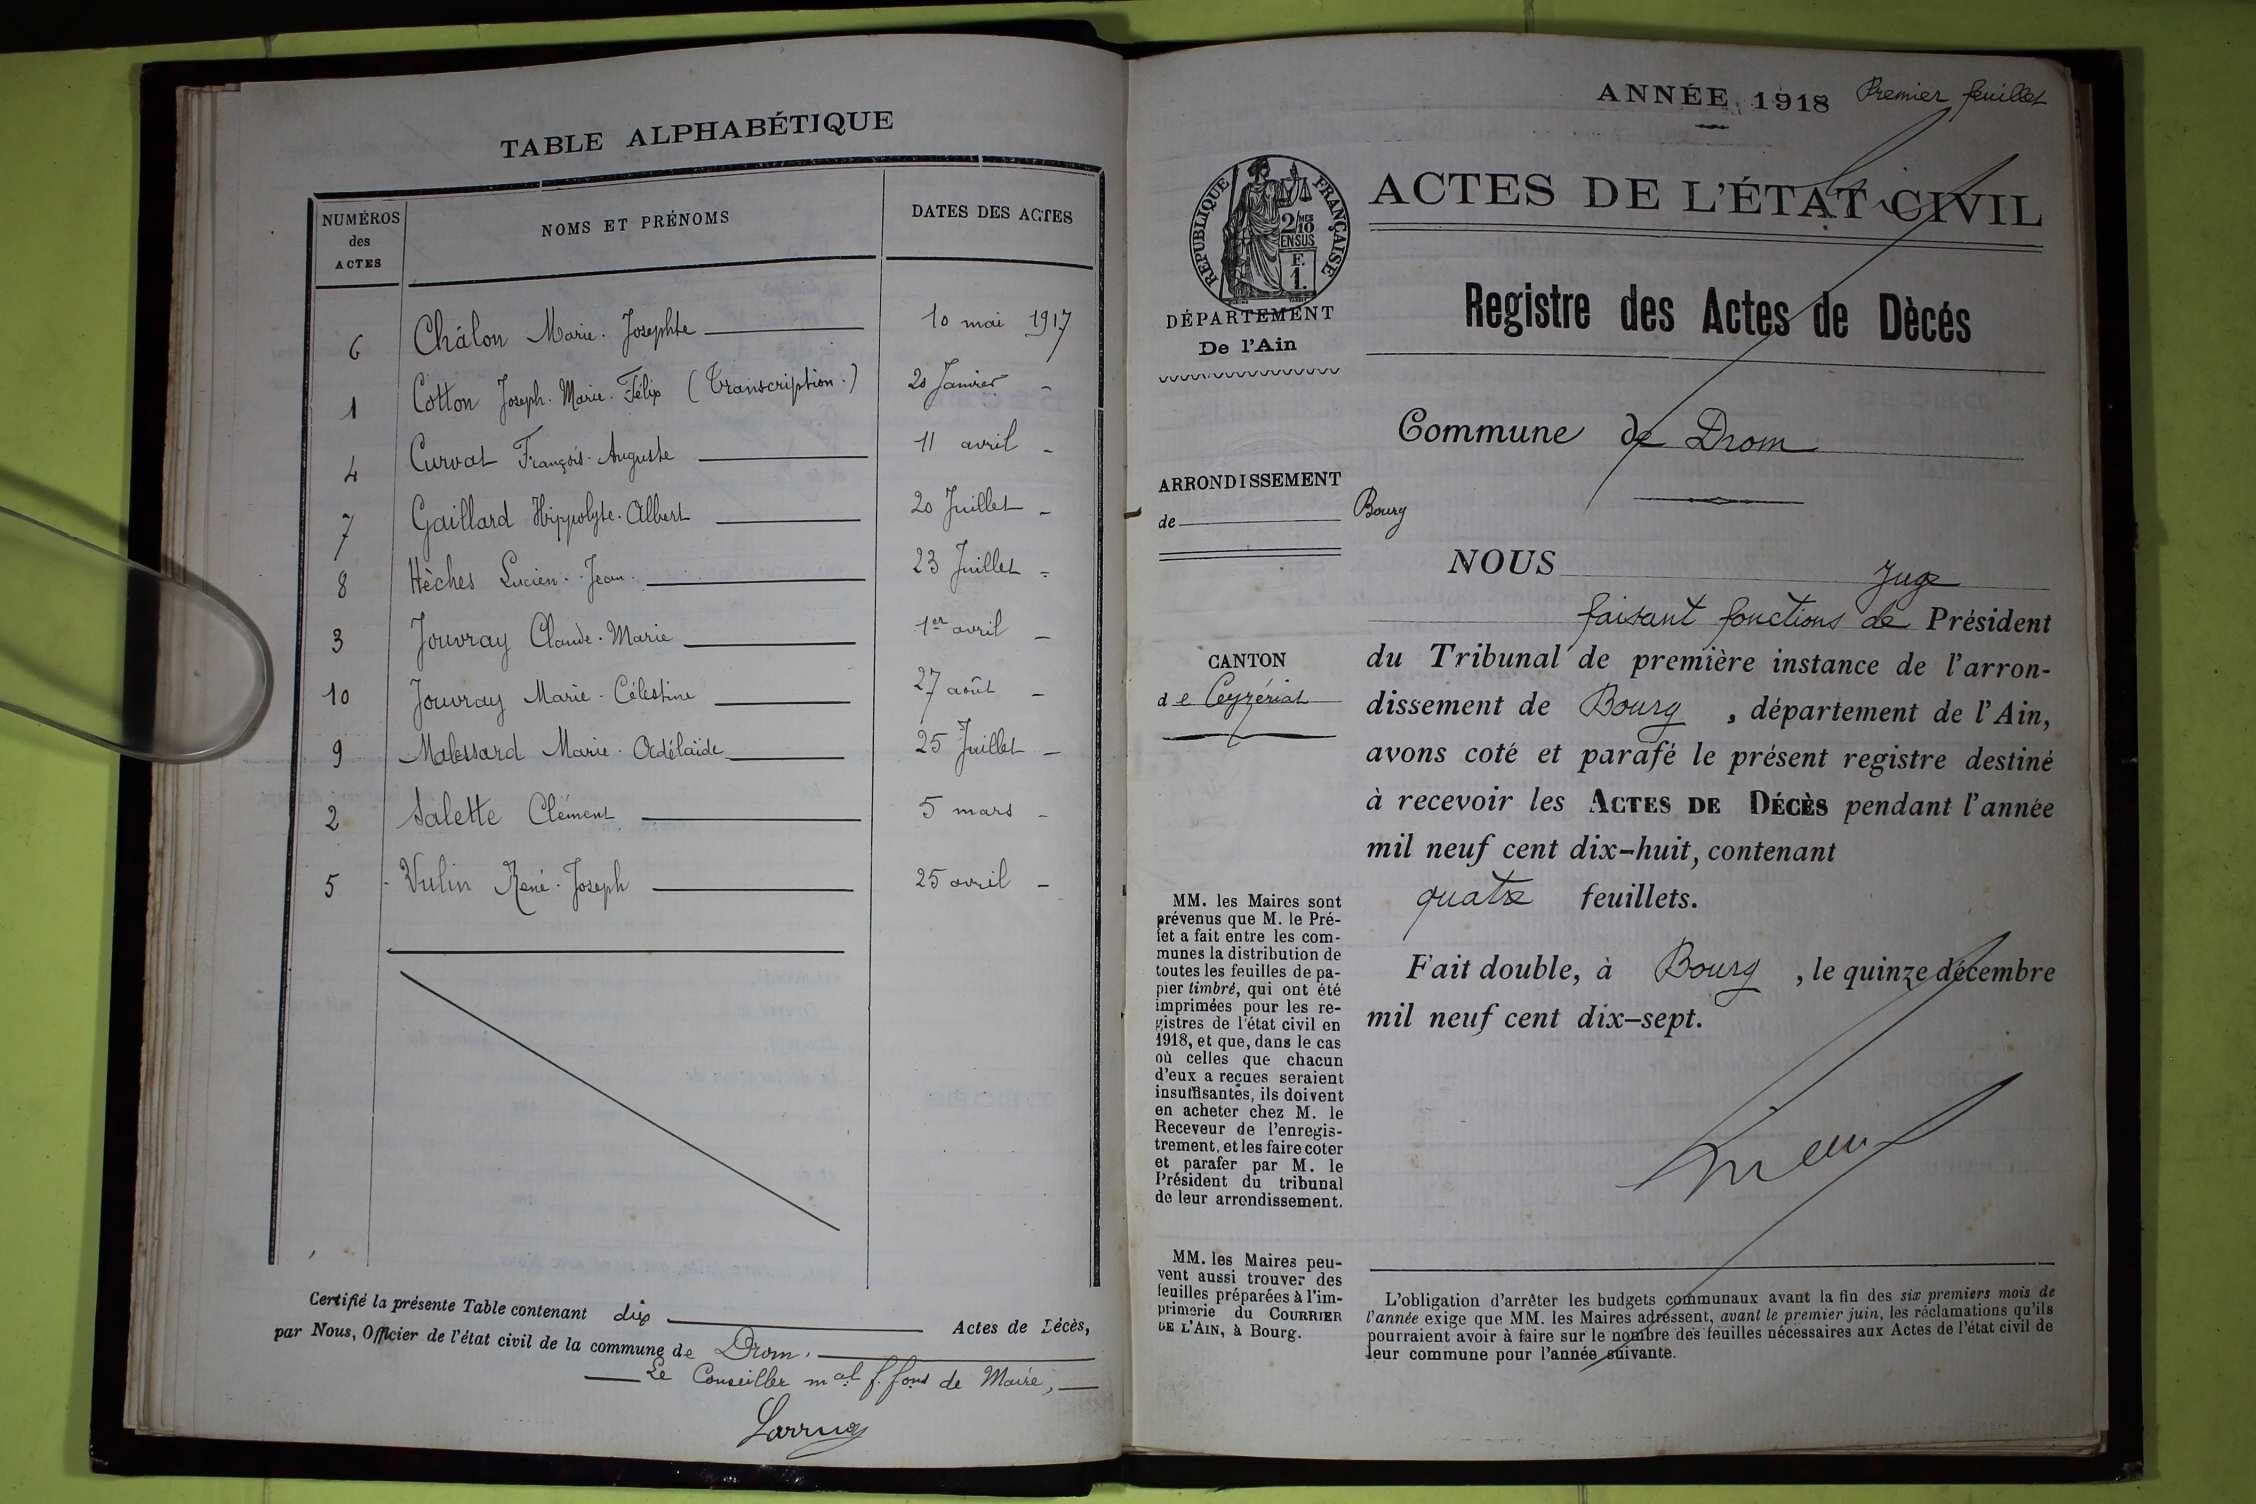 TABLE ALPHABÉTIQUE
NUMÉROS des ACTES NOMS ET PRÉNOMS DATES DES ACTES
6 Châlon Marie-Josephte 10 mai 1917
1 Cotton Joseph-Marie-Félix (Transcription.) 20 Janvier -
4 Curvat François-Auguste 11 avril -
7 Gaillard Hippolyte-Albert 20 Juillet -
8 Hèches Lucien-Jean 23 Juillet -
3 Jouvray Claude-Marie 1er avril -
10 Jouvray Marie-Célestine 27 août -
9 Malessard Marie-Adélaïde 25 Juillet -
2 Salette Clément 5 mars -
5 Vulin René-Joseph 25 avril -
Certifié la présente Table contenant dix Actes de Décès,
par Nous, Officier de l'état civil de la commune de Drom.
Le Conseiller mal f. fons de Maire,
ANNÉE 1918 Premier feuillet
RÉPUBLIQUE FRANÇAISE
2/10 MES
EN SUS
F.
1.
ACTES DE L'ÉTAT CIVIL
Registre des Actes de Dècés
DÉPARTEMENT
De l'Ain
Commune de Drom
ARRONDISSEMENT
de Bourg
CANTON
de Ceyzériat
NOUS Juge
faisant fonctions de Président
du Tribunal de première instance de l'arron-
dissement de Bourg, département de l'Ain,
avons coté et parafé le présent registre destiné
à recevoir les ACTES DE DÉCÈS pendant l'année
mil neuf cent dix-huit, contenant
quatre feuillets.
Fait double, à Bourg, le quinze décembre
mil neuf cent dix-sept.
MM. les Maires sont
prévenus que M. le Pré-
fet a fait entre les com-
munes la distribution de
toutes les feuilles de pa-
pier timbré, qui ont été
imprimées pour les re-
gistres de l'état civil en
1918, et que, dans le cas
où celles que chacun
d'eux a reçues seraient
insuffisantes, ils doivent
en acheter chez M. le
Receveur de l'enregis-
trement, et les faire coter
et parafer par M. le
Président du tribunal
de leur arrondissement.
MM. les Maires peu-
vent aussi trouver des
feuilles préparées à l'im-
primerie du COURRIER
DE L'AIN, à Bourg.
L'obligation d'arrêter les budgets communaux avant la fin des six premiers mois de
l'année exige que MM. les Maires adressent, avant le premier juin, les réclamations qu'ils
pourraient avoir à faire sur le nombre des feuilles nécessaires aux Actes de l'état civil de
leur commune pour l'année suivante.